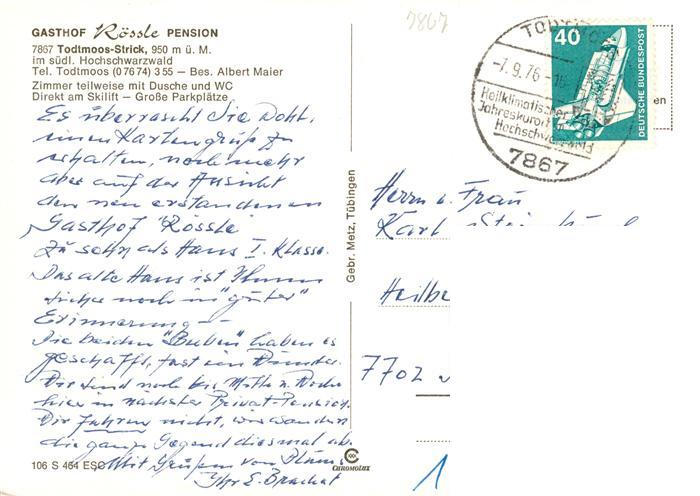 GASTHOF Rössle PENSION
7867 Todtmoos-Strick, 950 m ü. M.
im südl. Hochschwarzwald
Tel. Todtmoos (0 76 74) 3 55 — Bes. Albert Maier
Zimmer teilweise mit Dusche und WC
Direkt am Skilift — Große Parkplätze
Es überrascht Sie wohl,
einen Kartengruß zu
erhalten, noch mehr
aber auf der Ansicht
den neu erstandenen
Gasthof "Rössle"
zu sehn als Haus I. Klasse.
Das alte Haus ist Ihnen
sicher noch in "guter"
Erinnerung —
Die beiden "Buben" haben es
geschafft, fast ein Wunder.
Wir sind noch bis Mitte n. Woche
hier in nächster Privat-Pension.
Wir fahren nicht, wir wandern
die ganze Gegend diesmal ab.
Mit Grüßen von Haus
Ihr E. Brachat
106 S 464 ESC
Gebr. Metz, Tübingen
CHROMOLUX
7867
TODTMOOS
-7.9.76-16
Heilklimatischer
Jahreskurort
Hochschwarzwald
7867
40
DEUTSCHE BUNDESPOST
en
Herrn u. Frau
Karl
Heilb
7702
1